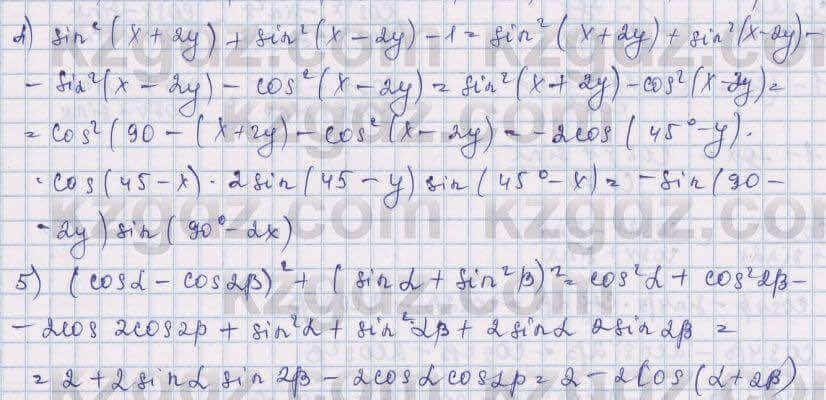 4) sin²(x + 2y) + sin²(x - 2y) - 1 = sin²(x + 2y) + sin²(x - 2y) -
- sin²(x - 2y) - cos²(x - 2y) = sin²(x + 2y) - cos²(x - 2y) =
= cos²(90 - (x + 2y) - cos²(x - 2y) = -2cos(45° - y) ·
· cos(45 - x) · 2sin(45 - y) sin(45° - x) = -sin(90 -
- 2y) sin(90° - 2x)
5) (cosα - cos2β)² + (sinα + sin²β)² = cos²α + cos²2β -
- 2cos 2cos2β + sin²α + sin²2β + 2sinα 2sin2β =
= 2 + 2sinα sin2β - 2cosα cos2β = 2 - 2cos(α + 2β)
kzgdz.com
kzgdz.com
kzgdz.com
kzgdz.com